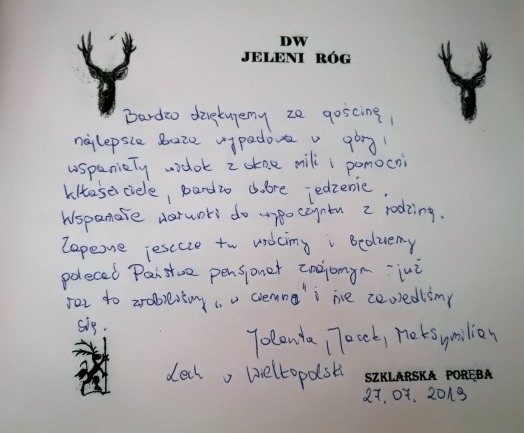 DW
JELENI RÓG
Bardzo dziękujemy za gościnę,
najlepsza baza wypadowa w góry,
wspaniały widok z okna mili i pomocni
właściciele, bardzo dobre jedzenie.
Wspaniałe warunki do wypoczynku z rodziną.
Zapewne jeszcze tu wrócimy i będziemy
polecać Państwa pensjonat znajomym - już
raz to zrobiliśmy „w ciemno" i nie zawiedliśmy
się.
Jolanta, Jacek, Maksymilian
Lech w Wielkopolski
SZKLARSKA PORĘBA
27.07.2019